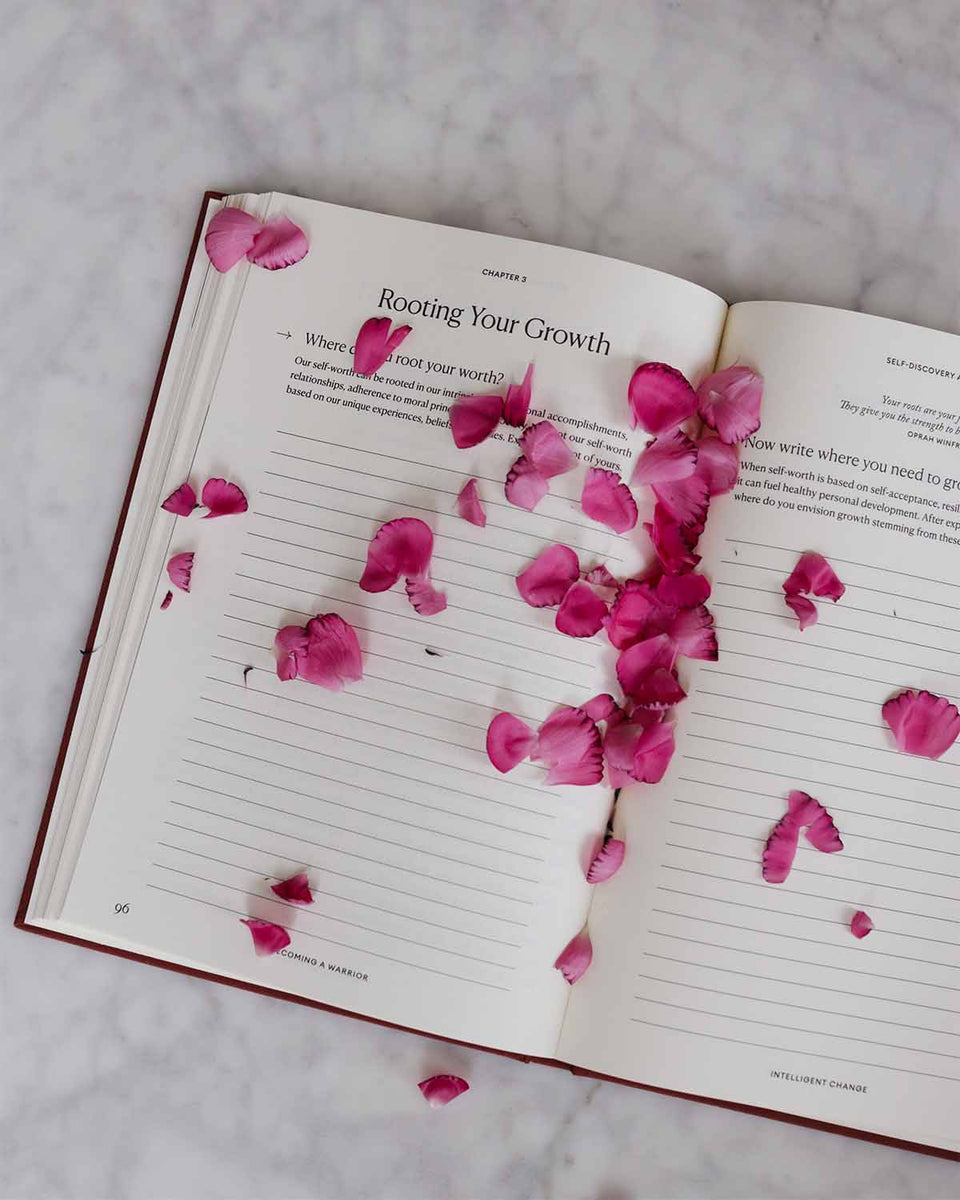 CHAPTER 3
Rooting Your Growth
→ Where root your worth?
Our self-worth can be rooted in our intrinsic onal accomplishments,
relationships, adherence to moral prin ot our self-worth
based on our unique experiences, beliefs es. ot of yours.
96
COMING A WARRIOR
SELF-DISCOVERY
Your roots are your
They give you the strength to b
OPRAH WINFR
Now write where you need to gro
When self-worth is based on self-acceptance, resil
it can fuel healthy personal development. After exp
where do you envision growth stemming from these
INTELLIGENT CHANGE